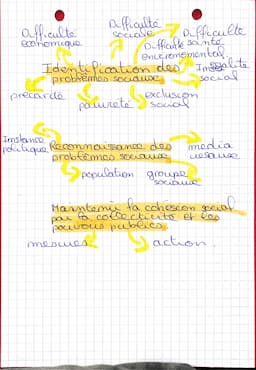 Difficulté
économique
Difficulté
sociale
Difficulté
Difficulté santé
environnemental
Identification des
problèmes sociaux
social
précarité
pauvreté
exclusion
social
Instance
politique
Reconnaissance des
problèmes sociaux
media
réseaux
population
groupe
sociaux
Maintenir la cohésion social
par la collectivité et les
pouvoirs publics.
mesures
action.